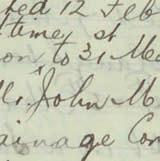 ted 12 Feb
time, at
on, to 31 Ma
John M
ainage Con